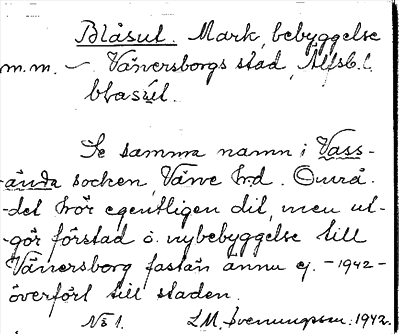 Blåsut. Mark, bebyggelse
m.m. — Vänersborgs stad, Älfsb. l.
blasút.
Se samma namn i Vass-
-ända socken, Väne hrd. Områ-
-det hör egentligen dit, men ut-
-gör förstad o. nybebyggelse till
Vänersborg fastän ännu ej - 1942 -
överfört till staden.
No 1. L.M. Svenungsson. 1942.